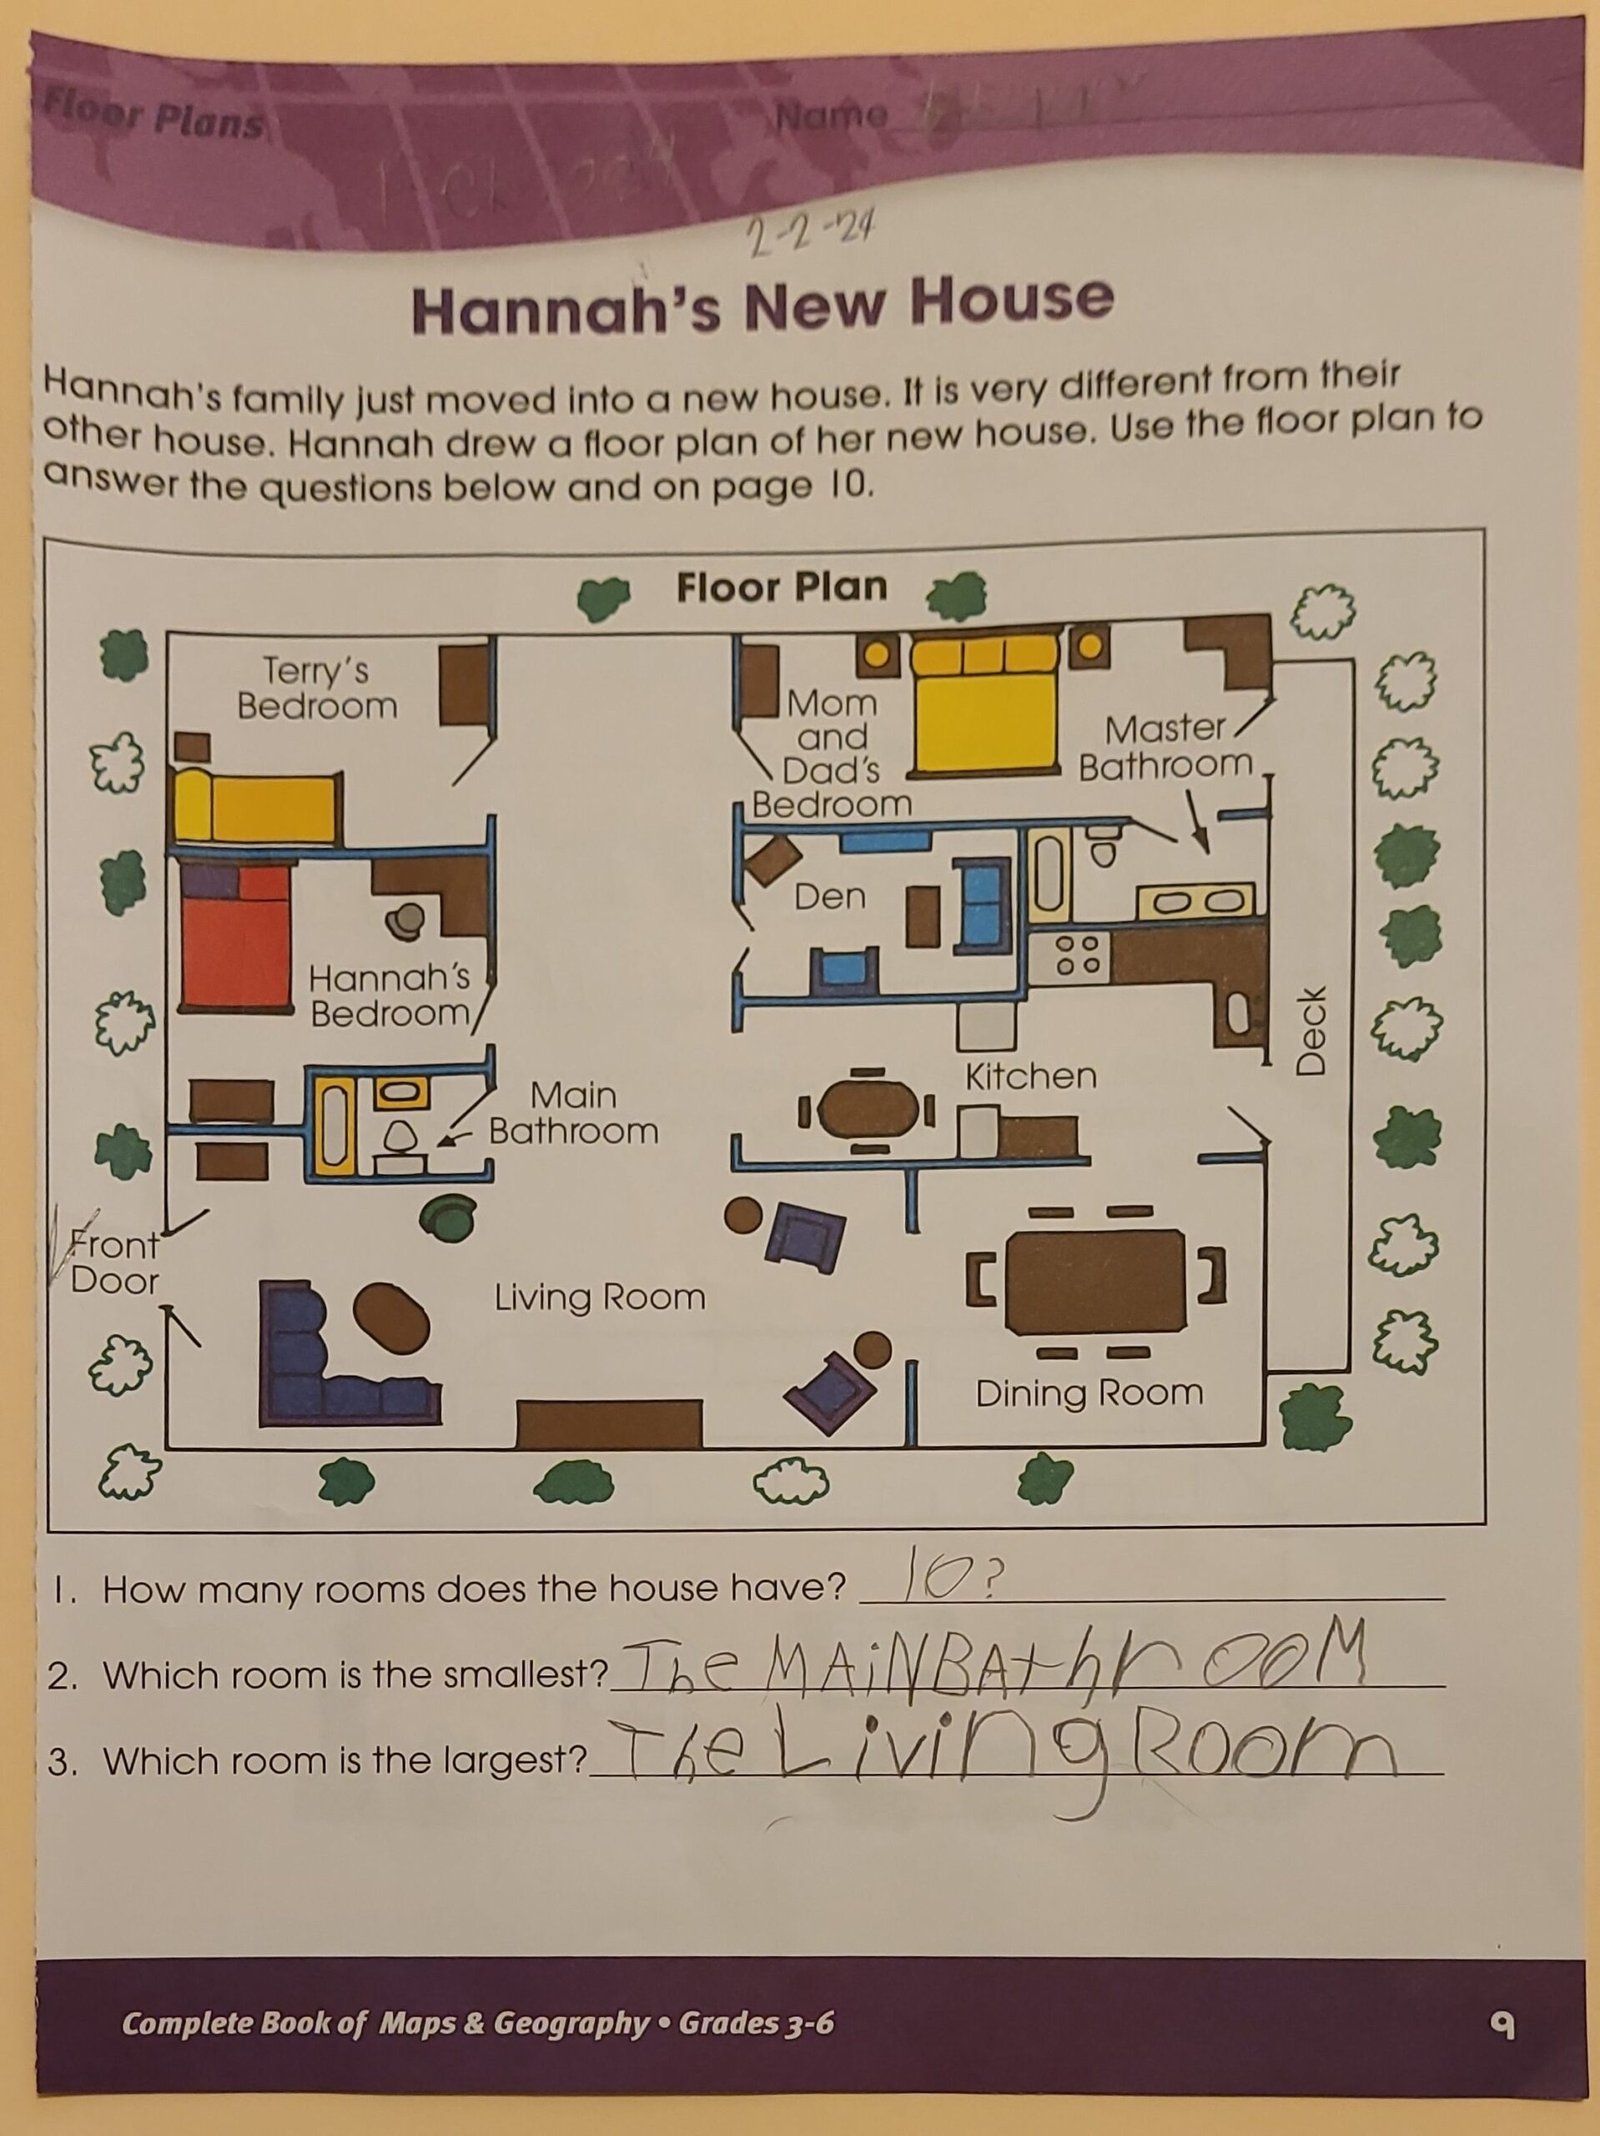 Floor Plans
Name
2-2-24
Hannah's New House
Hannah's family just moved into a new house. It is very different from their
other house. Hannah drew a floor plan of her new house. Use the floor plan to
answer the questions below and on page 10.
Floor Plan
Terry's
Bedroom
Mom
and
Dad's
Bedroom
Master
Bathroom
Den
Hannah's
Bedroom
Deck
Kitchen
Main
Bathroom
Front
Door
Living Room
Dining Room
1. How many rooms does the house have? 10?
2. Which room is the smallest? The MAiNBAthrooM
3. Which room is the largest? The Living Room
Complete Book of Maps & Geography • Grades 3-6
9